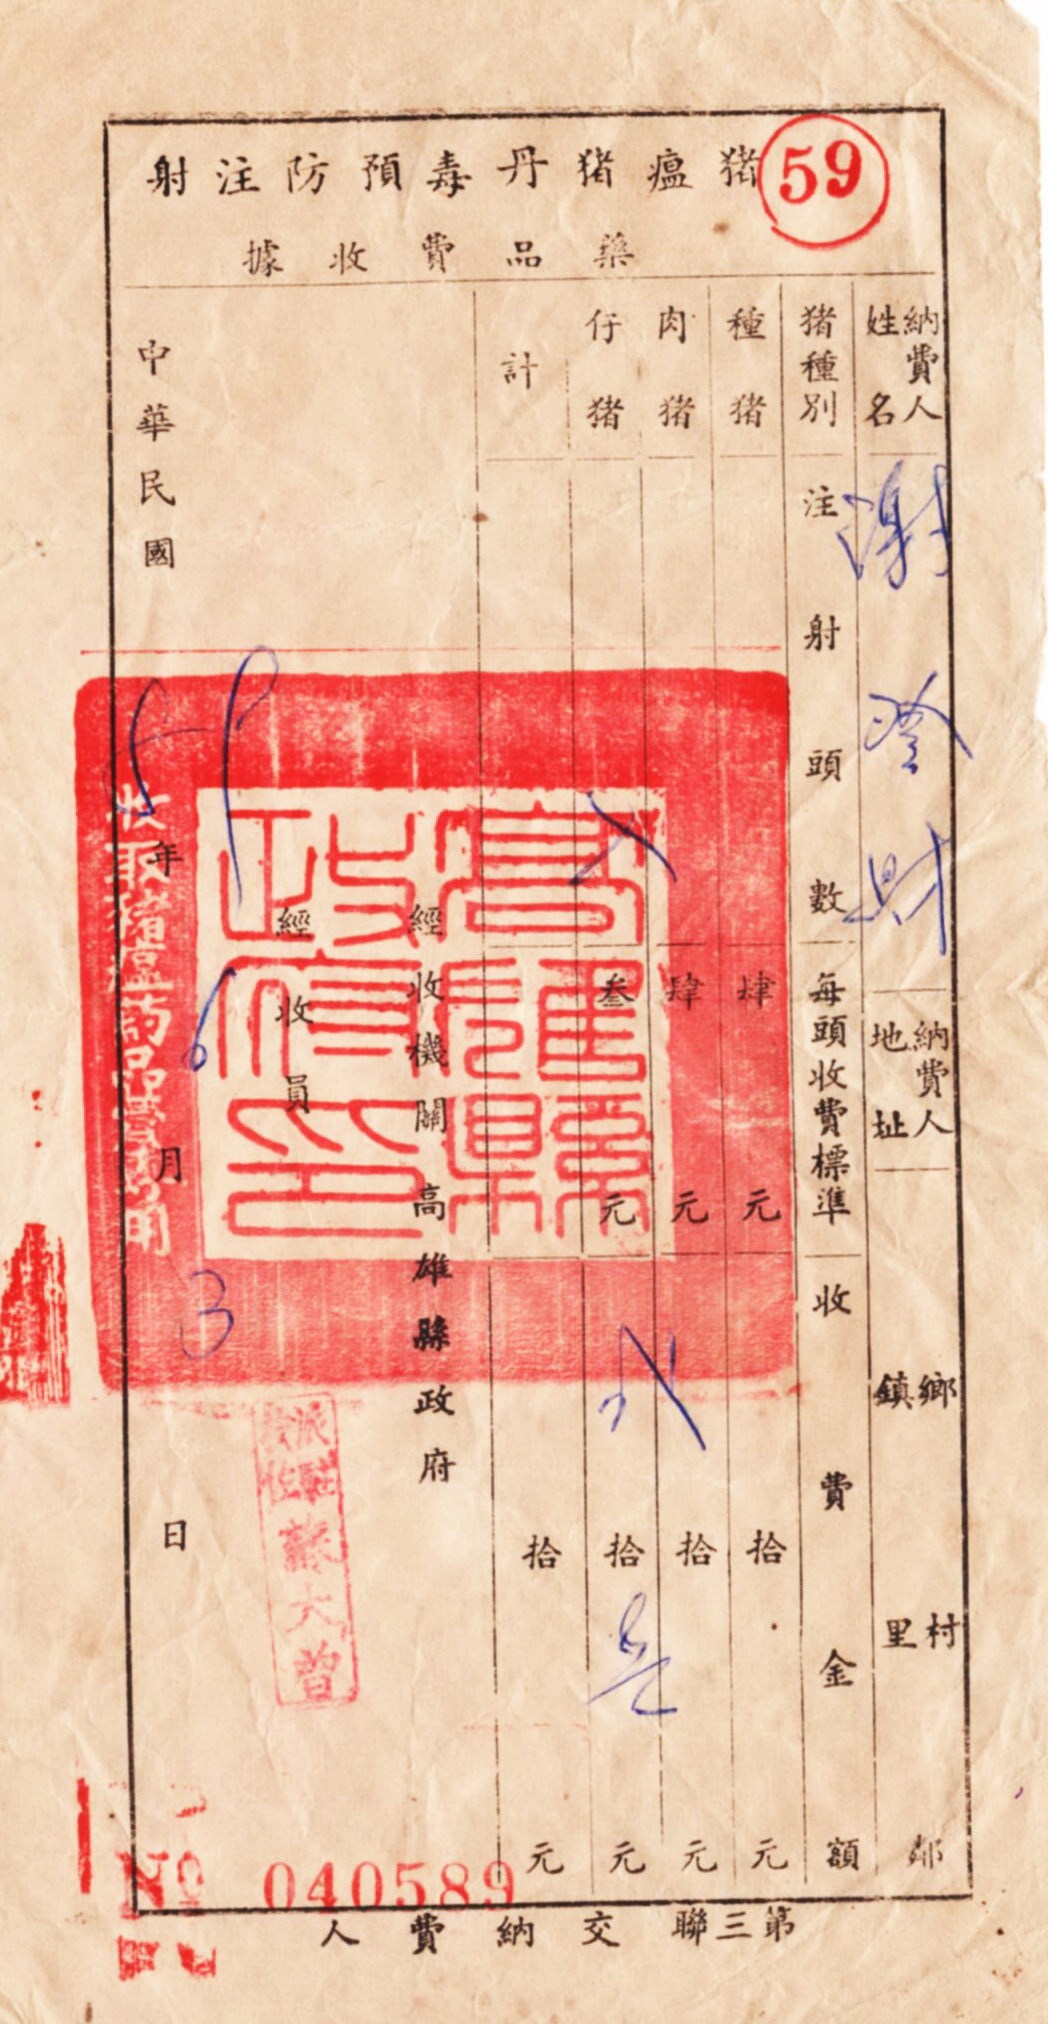 59
猪瘟猪丹毒預防注射
藥品費收據
納費人姓名
謝登財
納費人地址
鄉鎮
村里
鄰
猪種別
注射頭數
每頭收費標準
收費金額
種猪
肆元
拾元
肉猪
肆元
拾元
仔猪
叁元
拾元
計
拾元
經收機關高雄縣政府
經收員
高雄縣政府印
收取猪瘟葯品費專用
蘇大曾
中華民國59年6月3日
№ 040589
第三聯交納費人